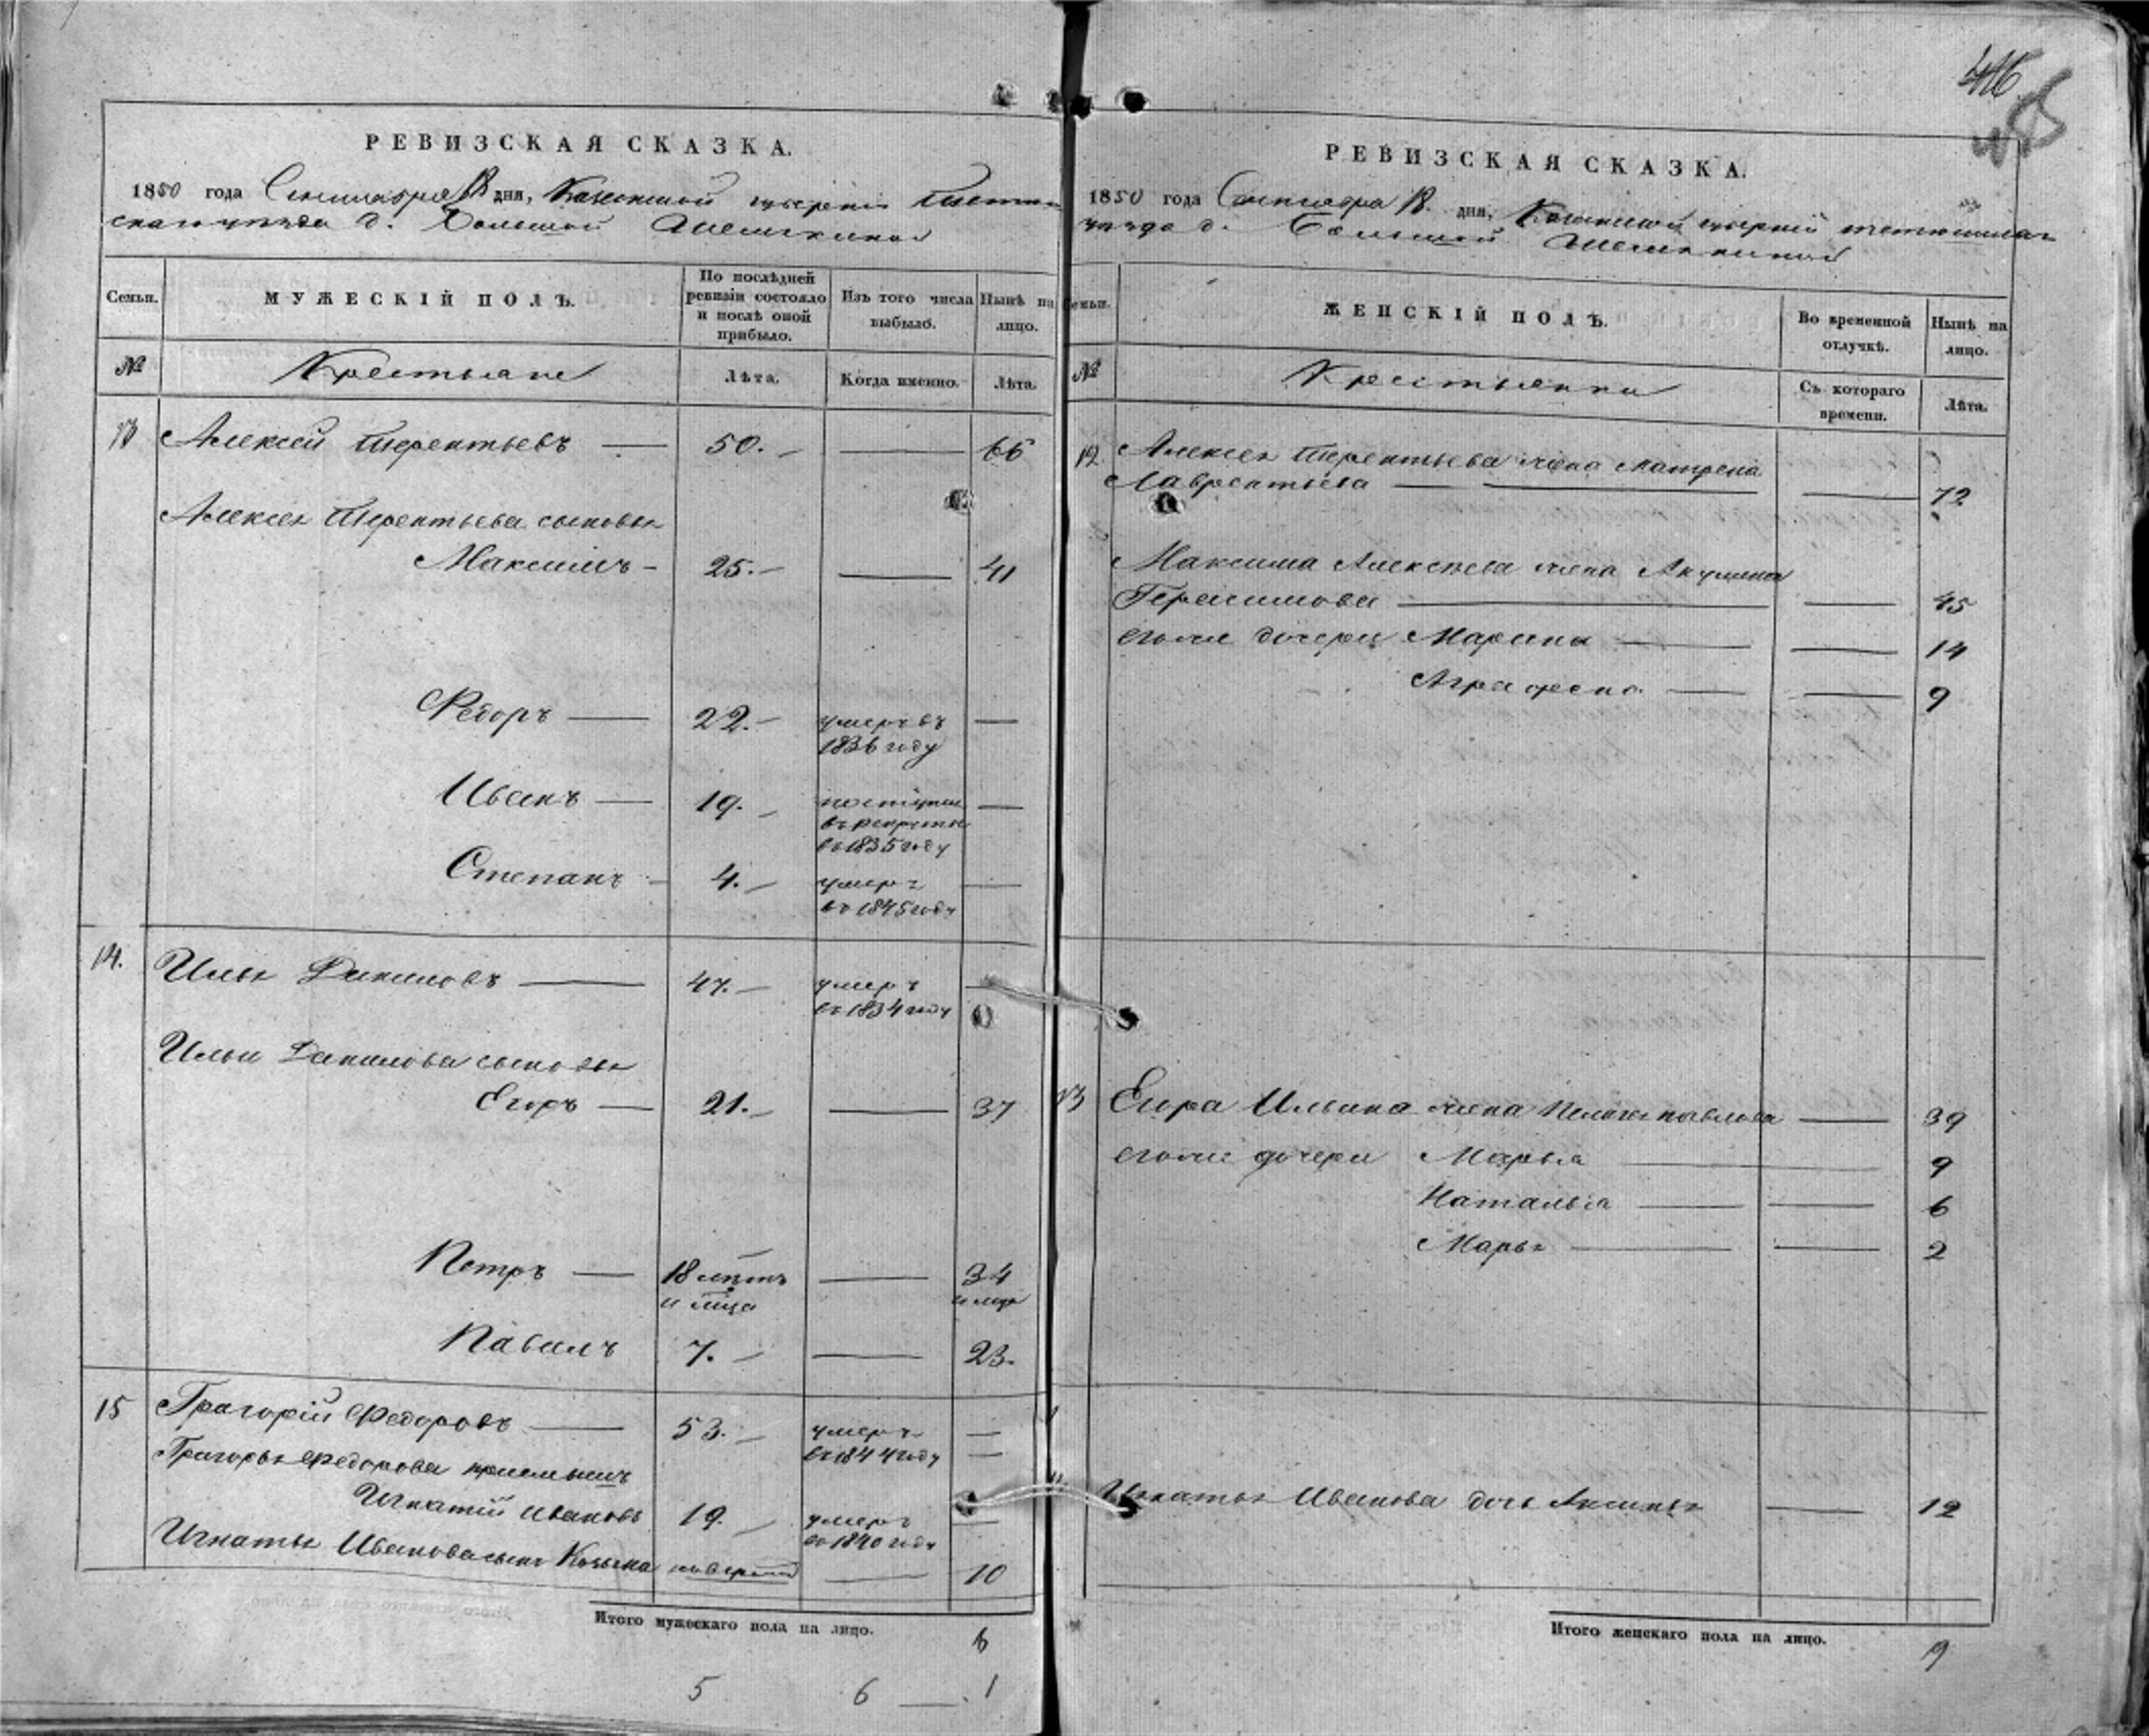 416
РЕВИЗСКАЯ СКАЗКА.
1850 года Сентября 18 дня, Казанской губернiи Тетюш
скаго уѣзда д. Большой
МУЖЕСКIЙ ПОЛЪ.
Семьи.
По послѣдней ревизiи состояло и послѣ оной прибыло.
Изъ того числа выбыло.
Нынѣ на лицо.
№
Крестьяне
Лѣта.
Когда именно.
Лѣта.
13 Алексей Терентьевъ — 50. — 66
Алексея Терентьева сыновья
Максимъ — 25. — 41
Федоръ — 22. — умеръ въ —
1836 году
Иванъ — 19. — поступил —
въ рекруты
въ 1835 году
Степанъ — 4. — умеръ —
въ 1845 году
14. Илья Даниловъ — 47. — умеръ —
въ 1834 году
Ильи Данилова сыновья
Егоръ — 21. — 37
Петръ — 18 лѣтъ — 34
Павилъ 7. — 23.
15 Григорiй Федоровъ — 53. — умеръ —
въ 1844 году —
Григорья Федорова приемышъ
Игнатiй Ивановъ 19. — умеръ —
въ 1840 году
Игнатья Иванова сынъ Козьма — 10
Итого мужескаго пола на лицо.
6
5 6 — 1
РЕВИЗСКАЯ СКАЗКА.
1850 года Сентября 18. дня, Казанской губернiй тетюшскаго
уѣзда д. Большой
Семьи.
ЖЕНСКIЙ ПОЛЪ.
Во временной отлучкѣ.
Нынѣ на лицо.
№
Крестьянки
Съ котораго времени.
Лѣта.
12 Алексея Терентьева жена Матрена
Лаврентьева — 72
Максима Алексѣева жена Акулина
Герасимова — 45
его же дочери Марина — 14
Аграфена — 9
13 Егора Ильина жена Пелагея павлова — 39
его же дочери Марья — 9
Наталья — 6
Марья — 2
Игнатья Иванова дочь Аксинья — 12
Итого женскаго пола на лицо.
9